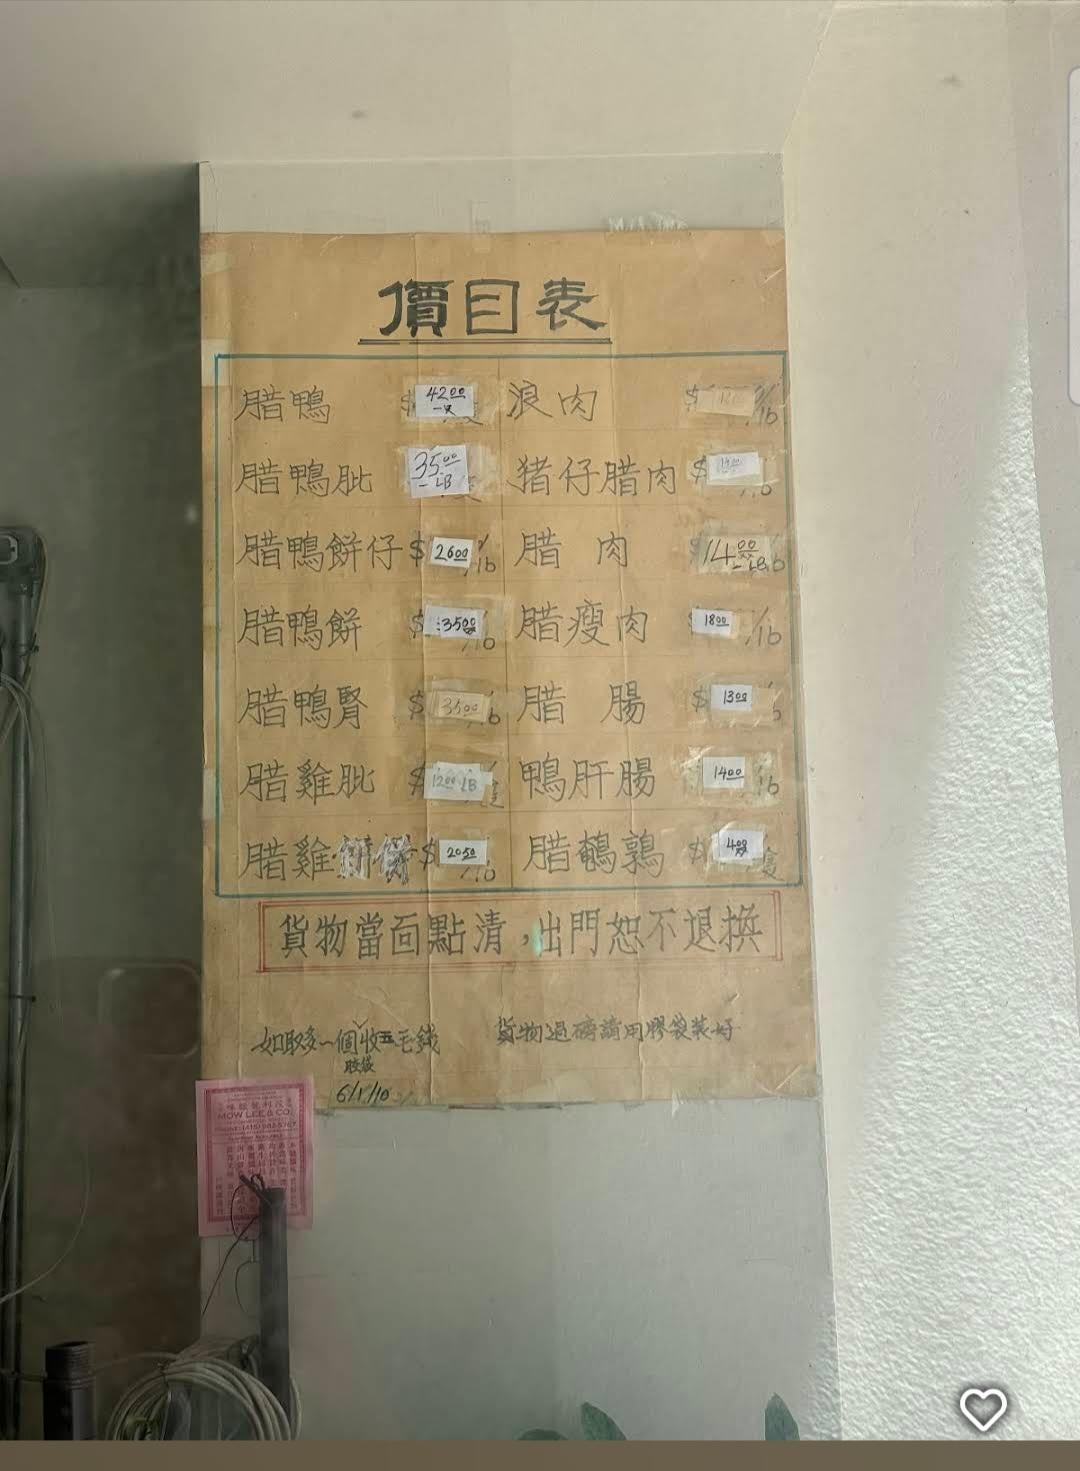 價目表
腊鴨 $42.00 一只
浪肉 $ /lb
腊鴨肶 35.00 一LB
猪仔腊肉 $
腊鴨餅仔 $26.00 /lb
腊肉 14.00 一LB
腊鴨餅 $35.00 /lb
腊瘦肉 $18.00 /lb
腊鴨腎 $35.00
腊腸 $13.00
腊雞肶 $12.00 LB
鴨肝腸 14.00 /lb
腊雞 $20.50 /lb
腊鵪鶉 $4.00 隻
貨物當面點清，出門恕不退換
如取多一個膠袋收五毛錢
貨物過磅請用膠袋裝好
6/1/10
MOW LEE & CO.